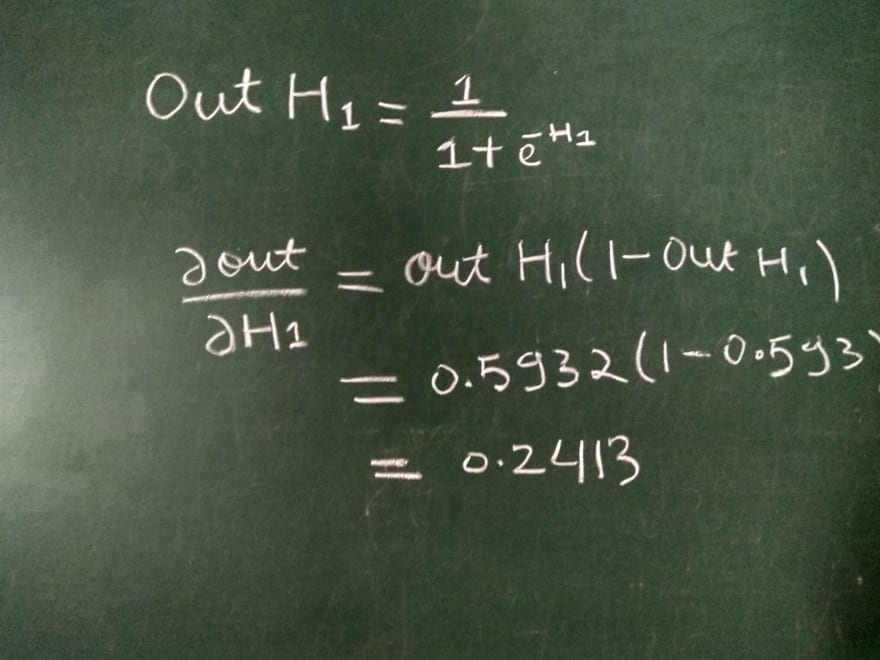 Out H₁ = 1/(1 + e^-H₁)
∂out/∂H₁ = out H₁(1 - Out H₁)
= 0.5932(1-0.593
= 0.2413